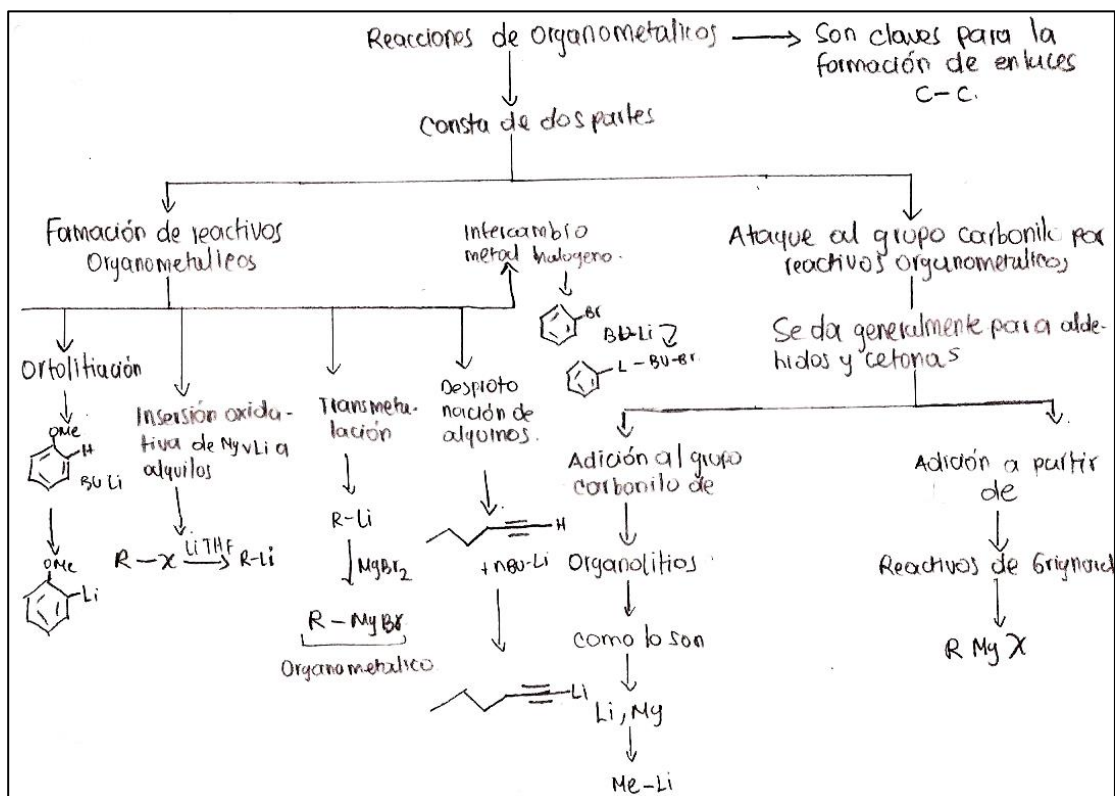 Reacciones de organometalicos
Son claves para la
formación de enluces
C-C.
Consta de dos partes
Formación de reactivos
Organometalicos
Intercambio
metal halogeno.
Br
BU-Li
L-BU-Br.
Ortolitiación
OMe
H
BU Li
OMe
Li
Insersión oxida-
tiva de Mg v Li a
alquilos
R-X Li THF R-Li
Transmeta-
lación
R-Li
MgBr2
R-MgBr
Organometalico
Desproto
nación de
alquinos.
H
+ nBU-Li
Li
Ataque al grupo carbonilo por
reactivos organometalicos
Se da generalmente para alde-
hidos y cetonas
Adición al grupo
carbonilo de
Organolitios
como lo son
Li, Mg
Me-Li
Adición a partir
de
Reactivos de Grignard
R Mg X